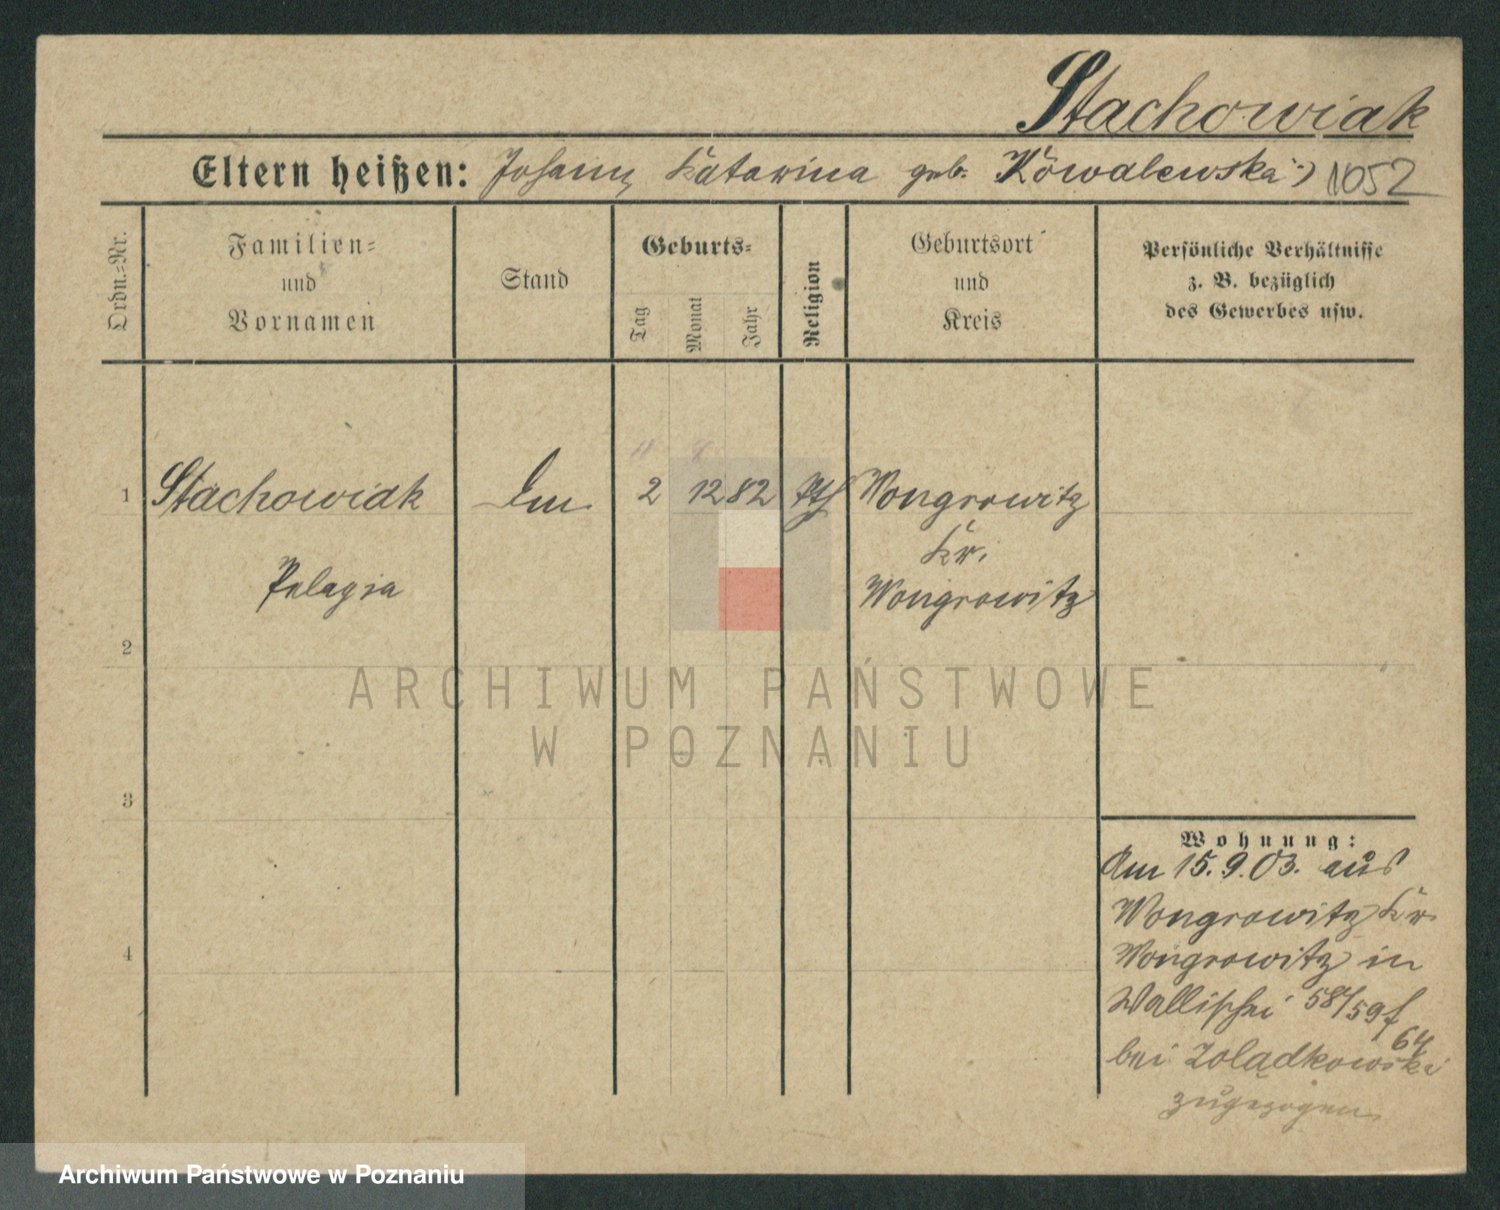 Stachowiak
Eltern heißen: Johann Katarina geb. Kowalewska 1052
Ordn.=Nr.
Familien=
und
Vornamen
Stand
Geburts=
Tag
Monat
Jahr
Religion
Geburtsort
und
Kreis
Persönliche Verhältnisse
z. B. bezüglich
des Gewerbes usw.
1 Stachowiak 2 12 82 kth Wongrowitz
Kr.
Pelagia Wongrowitz
2
ARCHIWUM PAŃSTWOWE
W POZNANIU
3
Wohnung:
Am 15.9.03. aus
Wongrowitz Kr.
4 Wongrowitz in
Wallischei 58/59
64
bei Zolądkowski
zugezogen
Archiwum Państwowe w Poznaniu